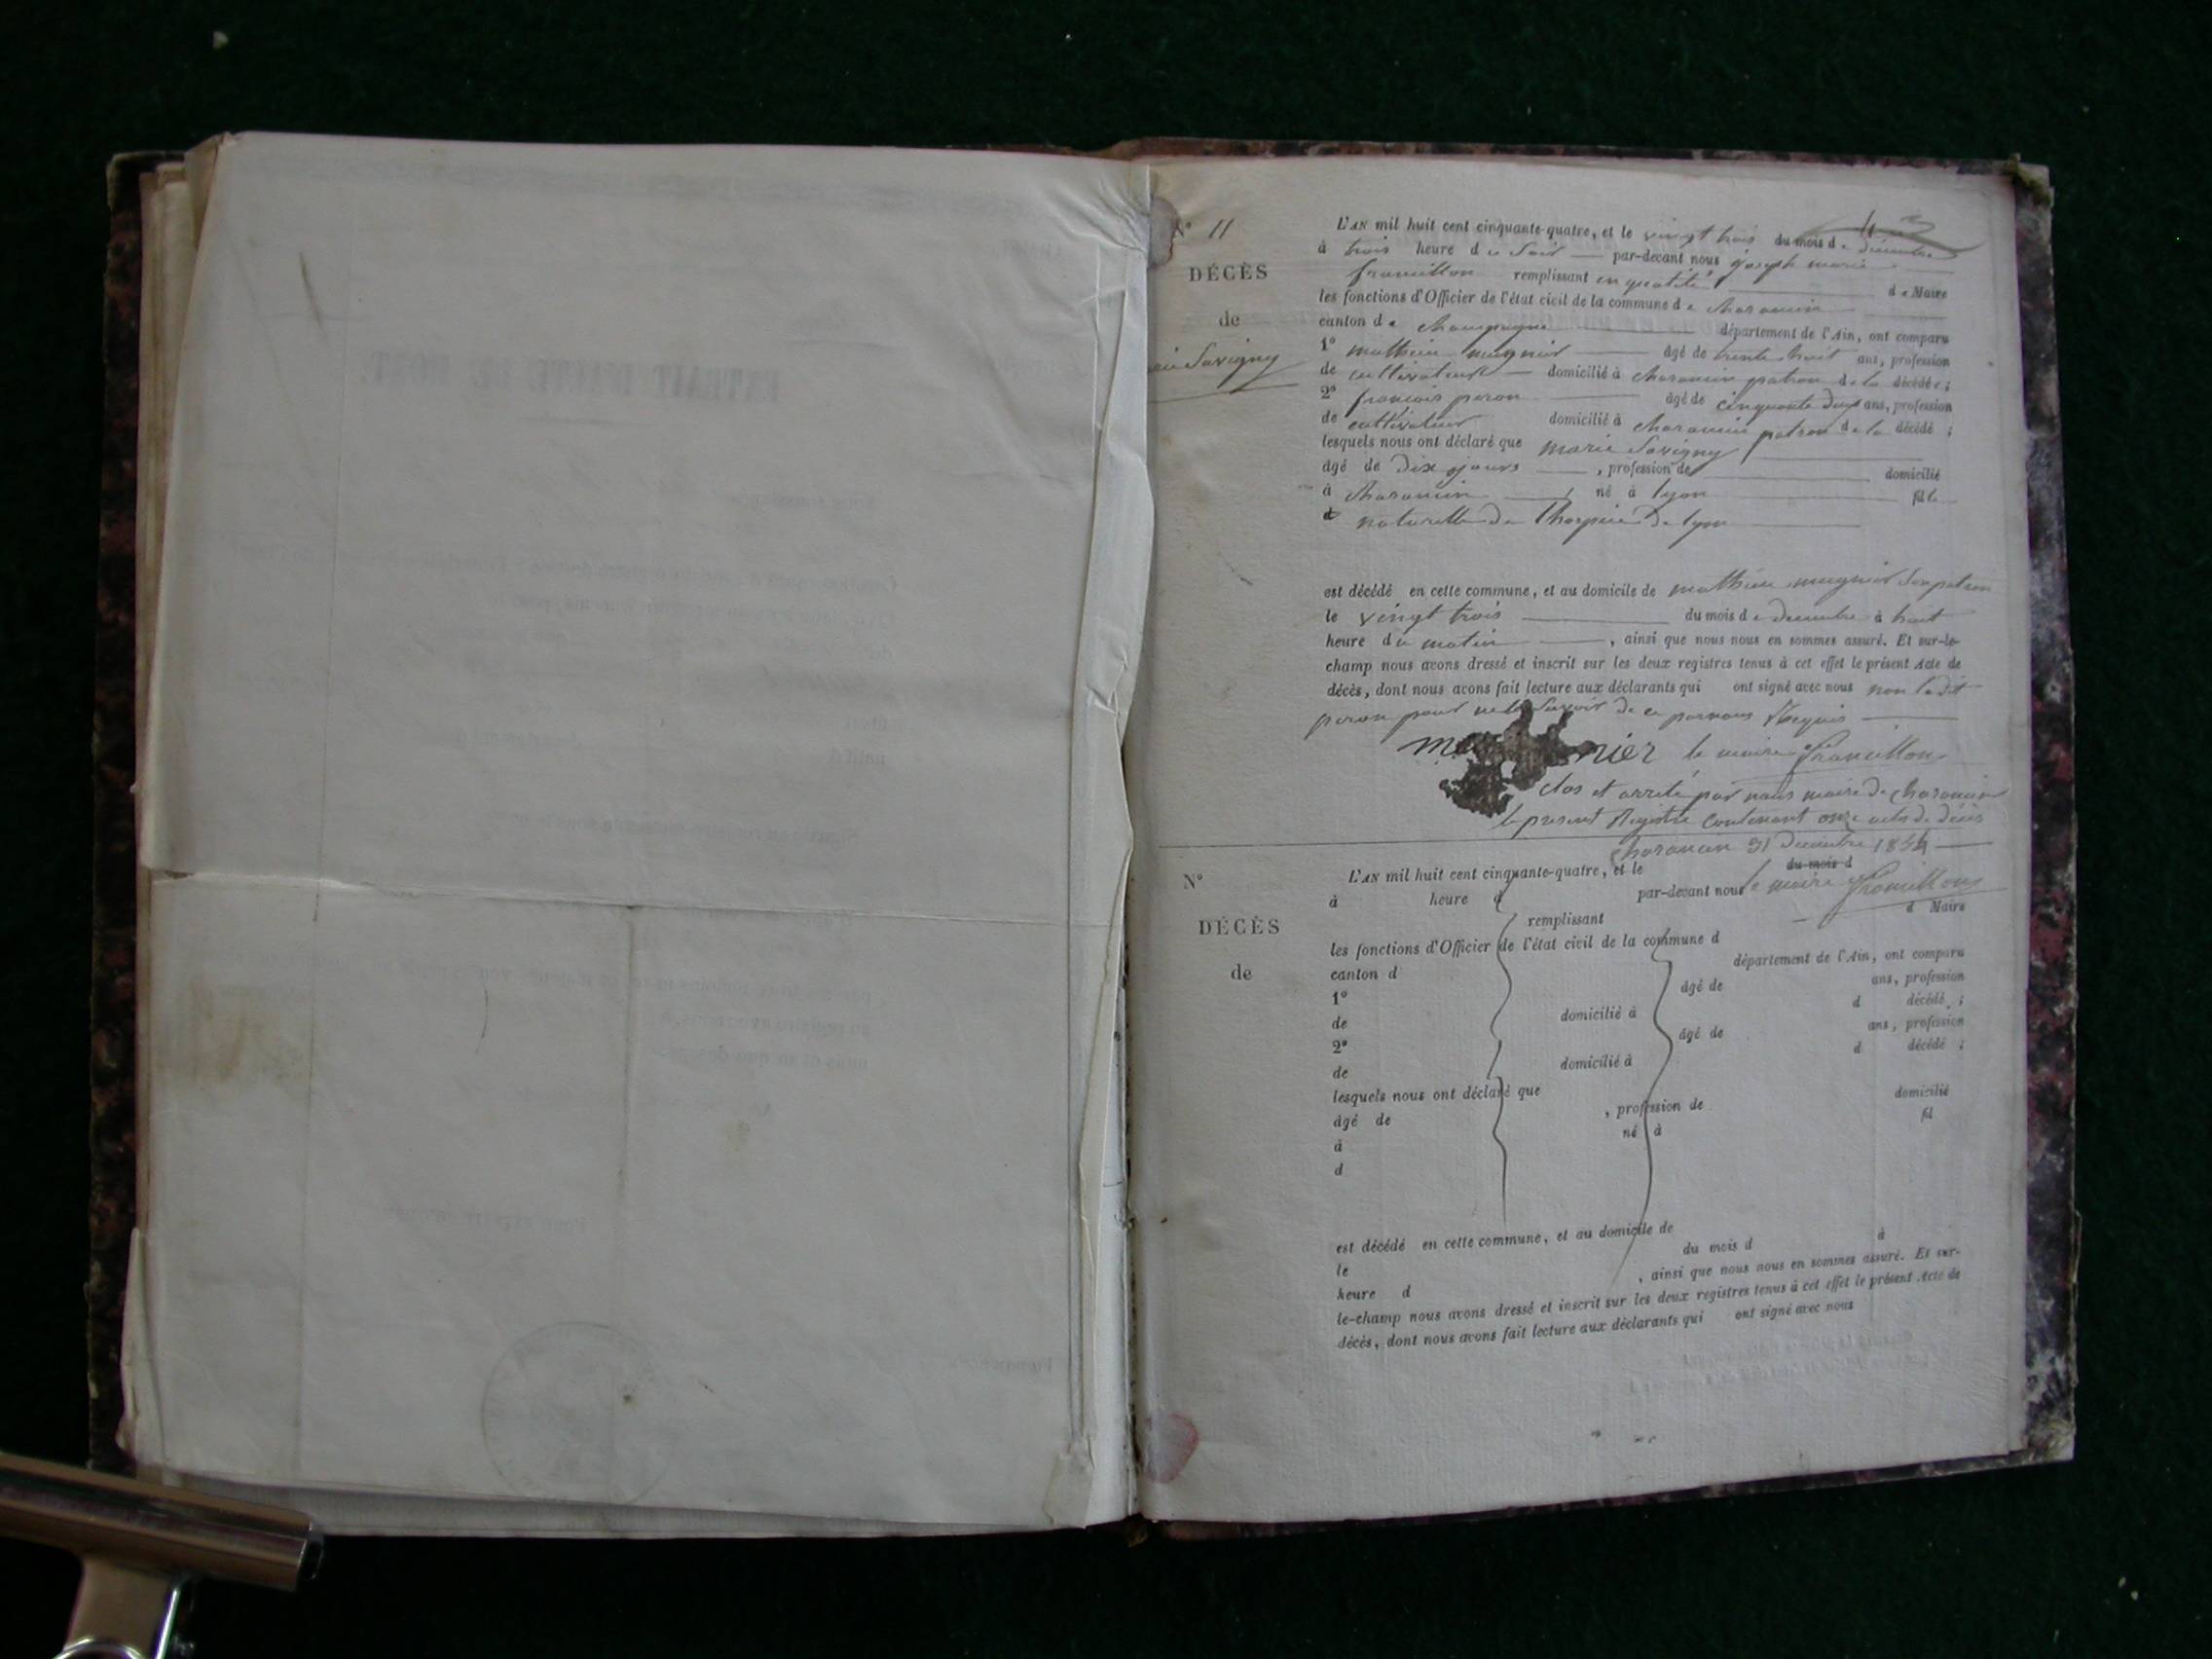 N° 11
DÉCÈS
de
Savigny
L'AN mil huit cent cinquante-quatre, et le vingt trois du mois de décembre
à trois heure du Soir par-devant nous joseph marie
francillon remplissant en qualité de Maire
les fonctions d'Officier de l'état civil de la commune de charancin
canton de champagne département de l'Ain, ont comparu
1° mathieu mugnier âgé de trente huit ans, profession
de cultivateur domicilié à charancin patron de la décédée ;
2° francois peron âgé de cinquante deux ans, profession
de cultivateur domicilié à charancin patron de la décédé ;
lesquels nous ont déclaré que marie Savigny
âgé de dix jours , profession de domicilié
à charancin , né à lyon fille
d naturelle de l'hospice De lyon
est décédé en cette commune, et au domicile de mathieu mugnier Son patron
le vingt trois du mois de decembre à huit
heure du matin , ainsi que nous nous en sommes assuré. Et sur-le-
champ nous avons dressé et inscrit sur les deux registres tenus à cet effet le présent Acte de
décès, dont nous avons fait lecture aux déclarants qui ont signé avec nous non le dit
peron pour ne le Savoir de ce par nous Requis
nier le maire Francillon
clos et arreté par nous maire de charancin
le present Registre contenant onze actes de décès
charancin 31 Decembre 1854
le maire Francillon
N°
DÉCÈS
de
L'AN mil huit cent cinquante-quatre, et le du mois d
à heure d par-devant nous
remplissant d Maire
les fonctions d'Officier de l'état civil de la commune d
canton d département de l'Ain, ont comparu
1° âgé de ans, profession
de domicilié à d décédé ;
2° âgé de ans, profession
de domicilié à d décédé ;
lesquels nous ont déclaré que
âgé de , profession de domicilié
à né à fil
d
est décédé en cette commune, et au domicile de
le du mois d à
heure d , ainsi que nous nous en sommes assuré. Et sur-
le-champ nous avons dressé et inscrit sur les deux registres tenus à cet effet le présent Acte de
décès, dont nous avons fait lecture aux déclarants qui ont signé avec nous